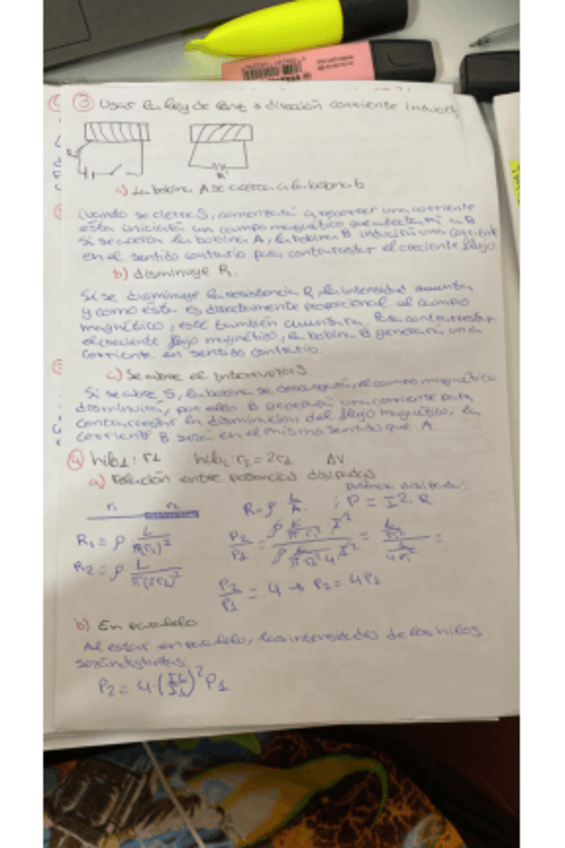 ③ Usar la ley de Lenz → dirección corriente induct.
a) La bobina A se acerca a la bobina b
Cuando se cierre S, comenzará a recorrer una corriente
esta iniciará un campo magnético que afectará a B
Si se acerca la bobina A, la bobina B inducirá una corriente
en el sentido contrario para contrarrestar el creciente flujo
b) disminuye R.
Si se disminuye la resistencia R, la intensidad aumenta
y como esta es directamente proporcional al campo
magnético, este también aumentara. Para contrarrestar
el creciente flujo magnético, la bobina B generará una
corriente en sentido contrario.
c) Se abre el interruptor S
Si se abre S, la bobina se descargará, el campo magnético
disminuirá, por ello B generará una corriente para
contrarrestar la disminucion del flujo magnético, la
corriente B será en el mismo sentido que A.
④ hilo1: r1 hilo2: r2 = 2r1 ΔV
a) Relación entre potencias disipadas
potencia disipada:
r1 r2 R = ρ L/A ; P = I² · R
R1 = ρ · L/π(r1)²
R2 = ρ · L/π(2r1)²
P2/P1 = 4 → P2 = 4P1
b) En paralelo
Al estar en paralelo, las intensidades de los hilos
serán distintas:
P2 = 4 · (I2/I1)² P1